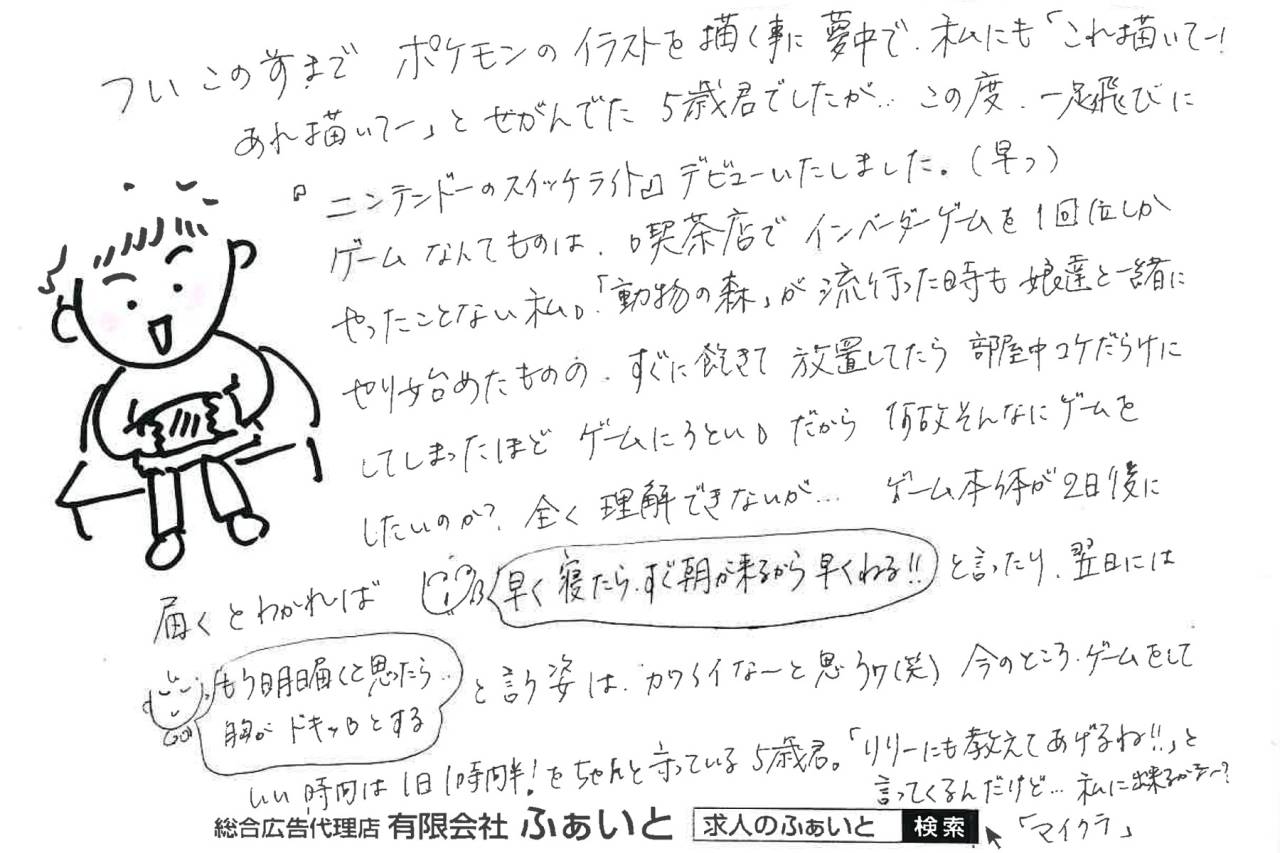 ついこの前まで ポケモンのイラストを描く事に夢中で、私にも「これ描いてー!
あれ描いてー」とせがんでた 5歳君でしたが… この度、一足飛びに
『ニンテンドーのスイッチライト』デビューいたしました。(早っ)
ゲームなんてものは、喫茶店で インベーダーゲームを1回位しか
やったことない私。「動物の森」が流行った時も 娘達と一緒に
やり始めたものの、すぐに飽きて 放置してたら 部屋中コケだらけに
してしまったほど ゲームにうとい。だから 何故そんなにゲームを
したいのか?全く理解できないが… ゲーム本体が2日後に
届くとわかれば 早く寝たら、すぐ朝が来るから早くねる!! と言ったり、翌日には
もう明日届くと思ったら…
胸がドキッとする
と言う姿は、カワイイなーと思うワ(笑) 今のところ、ゲームをして
いい時間は1日1時間半!をちゃんと守っている5歳君。「リリーにも教えてあげるね!!」と
言ってくるんだけど… 私に出来るかなー?
「マイクラ」
総合広告代理店 有限会社 ふぁいと 求人のふぁいと 検索